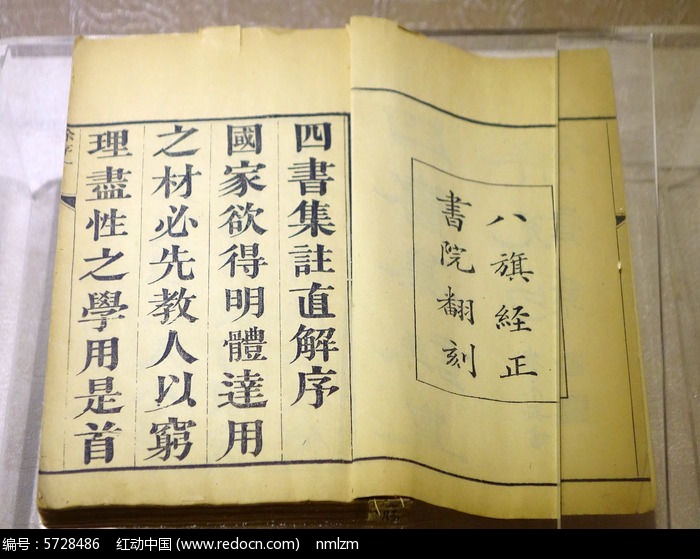 八旗經正
書院翻刻
四書集註直解序
國家欲得明體達用
之材必先教人以窮
理盡性之學用是首
编号：5728486 红动中国 (www.redocn.com) nmlzm